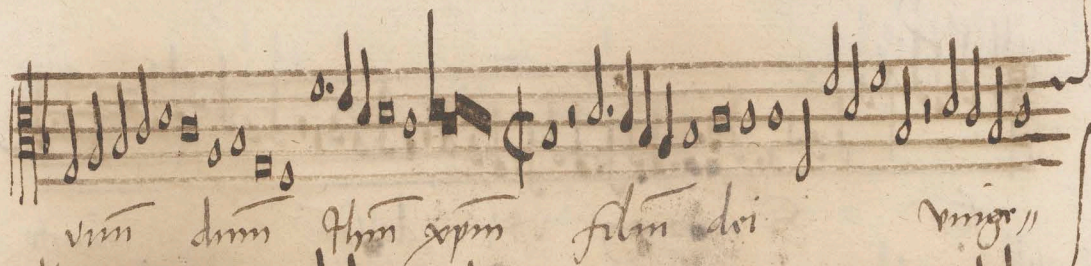 vnū dnm̄ Ihm̄ xpm̄ filiū dei vnige〃